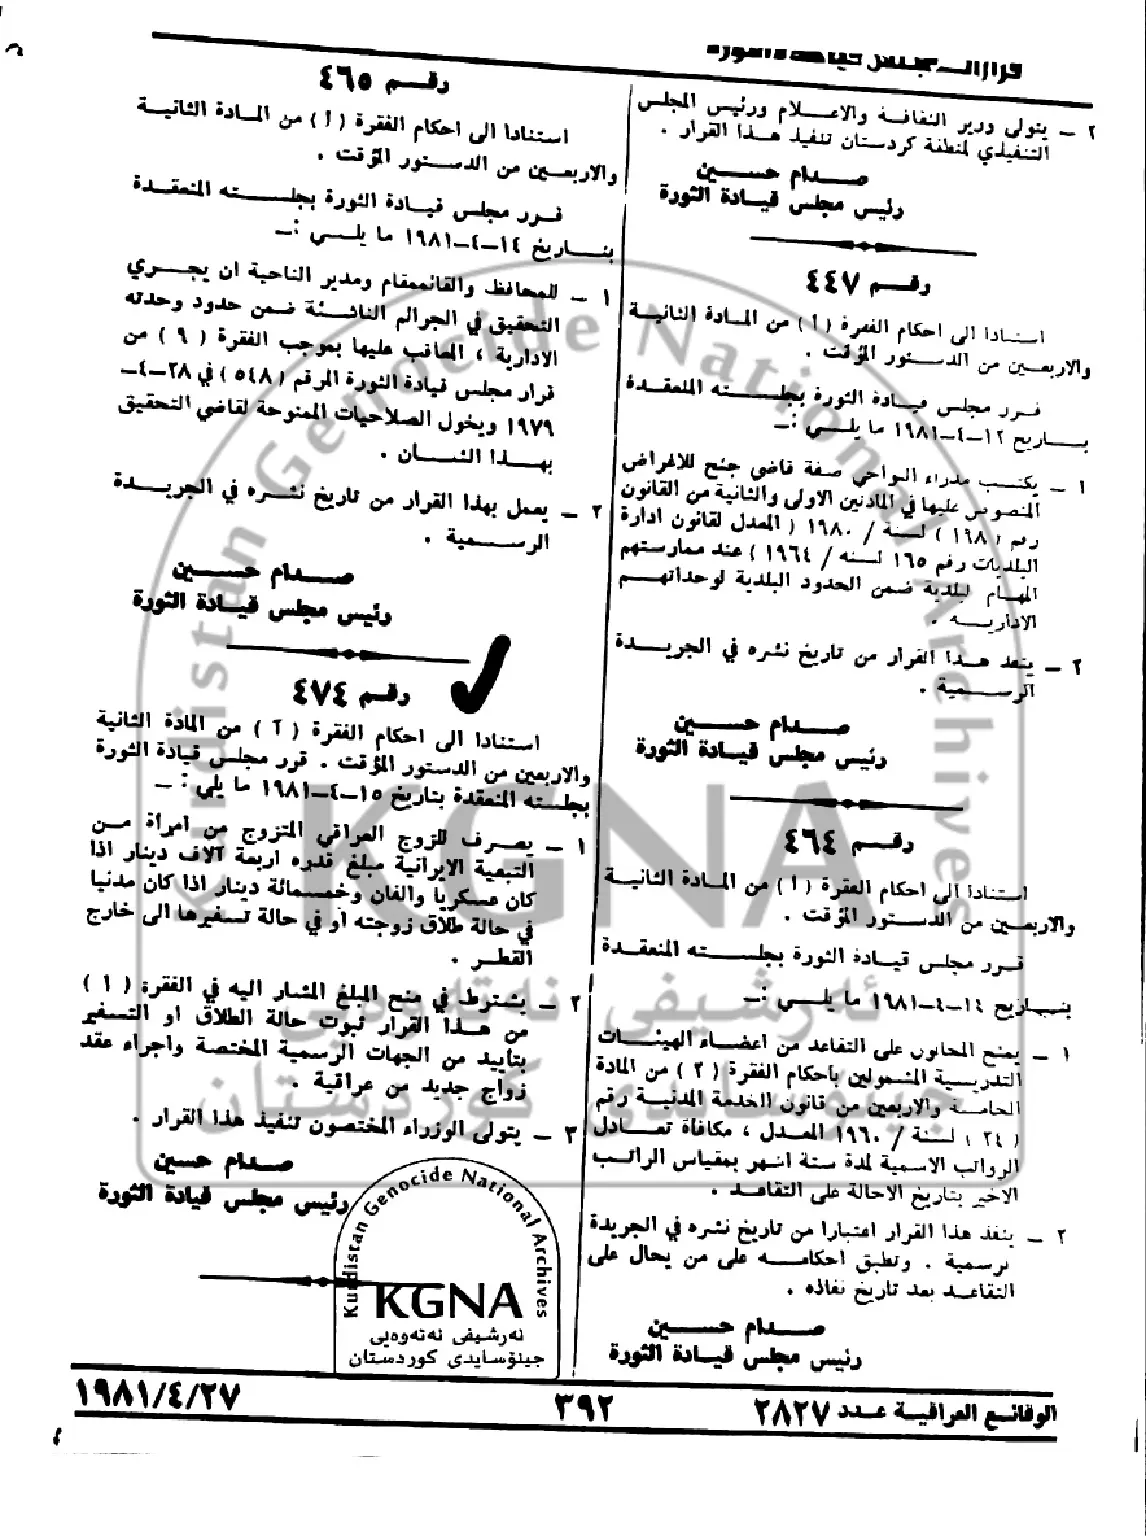 قرارات مجلس قيادة الثورة
٢ – يتولى وزير الثقافة والاعلام ورئيس المجلس
التنفيذي لمنطقة كردستان تنفيذ هذا القرار .
صدام حسين
رئيس مجلس قيادة الثورة
رقم ٤٤٧
استنادا الى احكام الفقرة ( أ ) من المادة الثانية
والاربعين من الدستور المؤقت .
قرر مجلس قيادة الثورة بجلسته المنعقدة
بتاريخ ١٢–٤–١٩٨١ ما يلي :–
١ – يكتسب مدراء النواحي صفة قاضي جنح للاغراض
المنصوص عليها في المادتين الاولى والثانية من القانون
رقم ( ١٦٨ ) لسنة / ١٩٨٠ ( المعدل لقانون ادارة
البلديات رقم ١٦٥ لسنة / ١٩٦٤ ) عند ممارستهم
المهام لبلدية ضمن الحدود البلدية لوحداتهم
الادارية .
٢ – ينفذ هذا القرار من تاريخ نشره في الجريدة
الرسمية .
صدام حسين
رئيس مجلس قيادة الثورة
رقم ٤٦٤
استنادا الى احكام الفقرة ( أ ) من المادة الثانية
والاربعين من الدستور المؤقت .
قرر مجلس قيادة الثورة بجلسته المنعقدة
بتاريخ ١٤–٤–١٩٨١ ما يلي :–
١ – يمنح المحالون على التقاعد من اعضاء الهيئات
التدريسية المشمولين بأحكام الفقرة ( ٢ ) من المادة
الخامسة والاربعين من قانون الخدمة المدنية رقم
( ٢٤ ) لسنة / ١٩٦٠ المعدل ، مكافأة تعادل
الرواتب الاسمية لمدة ستة اشهر بمقياس الراتب
الاخير بتاريخ الاحالة على التقاعد .
٢ – ينفذ هذا القرار اعتبارا من تاريخ نشره في الجريدة
لرسمية . وتطبق احكامه على من يحال على
التقاعد بعد تاريخ نفاذه .
صدام حسين
رئيس مجلس قيادة الثورة
رقم ٤٦٥
استنادا الى احكام الفقرة ( أ ) من المادة الثانية
والاربعين من الدستور المؤقت .
قرر مجلس قيادة الثورة بجلسته المنعقدة
بتاريخ ١٤–٤–١٩٨١ ما يلي :–
١ – للمحافظ والقائممقام ومدير الناحية ان يجري
التحقيق في الجرائم الناشئة ضمن حدود وحدته
الادارية ، المعاقب عليها بموجب الفقرة ( ٩ ) من
قرار مجلس قيادة الثورة المرقم ( ٥٤٨ ) في ٢٨–٤–
١٩٧٩ ويخول الصلاحيات الممنوحة لقاضي التحقيق
بهذا الشان .
٢ – يعمل بهذا القرار من تاريخ نشره في الجريدة
الرسمية .
صدام حسين
رئيس مجلس قيادة الثورة
رقم ٤٧٤
استنادا الى احكام الفقرة ( آ ) من المادة الثانية
والاربعين من الدستور المؤقت . قرر مجلس قيادة الثورة
بجلسته المنعقدة بتاريخ ١٥–٤–١٩٨١ ما يلي : –
١ – يصرف للزوج العراقي المتزوج من امرأة من
التبعية الايرانية مبلغ قدره اربعة آلاف دينار اذا
كان عسكريا والفان وخمسمائة دينار اذا كان مدنيا
في حالة طلاق زوجته أو في حالة تسفيرها الى خارج
القطر .
٢ – يشترط في منح المبلغ المشار اليه في الفقرة ( ١ )
من هذا القرار ثبوت حالة الطلاق او التسفير
بتأييد من الجهات الرسمية المختصة واجراء عقد
زواج جديد من عراقية .
٣ – يتولى الوزراء المختصون تنفيذ هذا القرار .
صدام حسين
رئيس مجلس قيادة الثورة
Kurdistan Genocide National Archives
KGNA
ئەرشیفی نەتەوەیی
جینۆسایدی کوردستان
Kurdistan Genocide National Archives
KGNA
ئەرشیفی نەتەوەیی
جینۆسایدی کوردستان
الوقائع العراقية عدد ٢٨٢٧
٣٩٢
١٩٨١/٤/٢٧